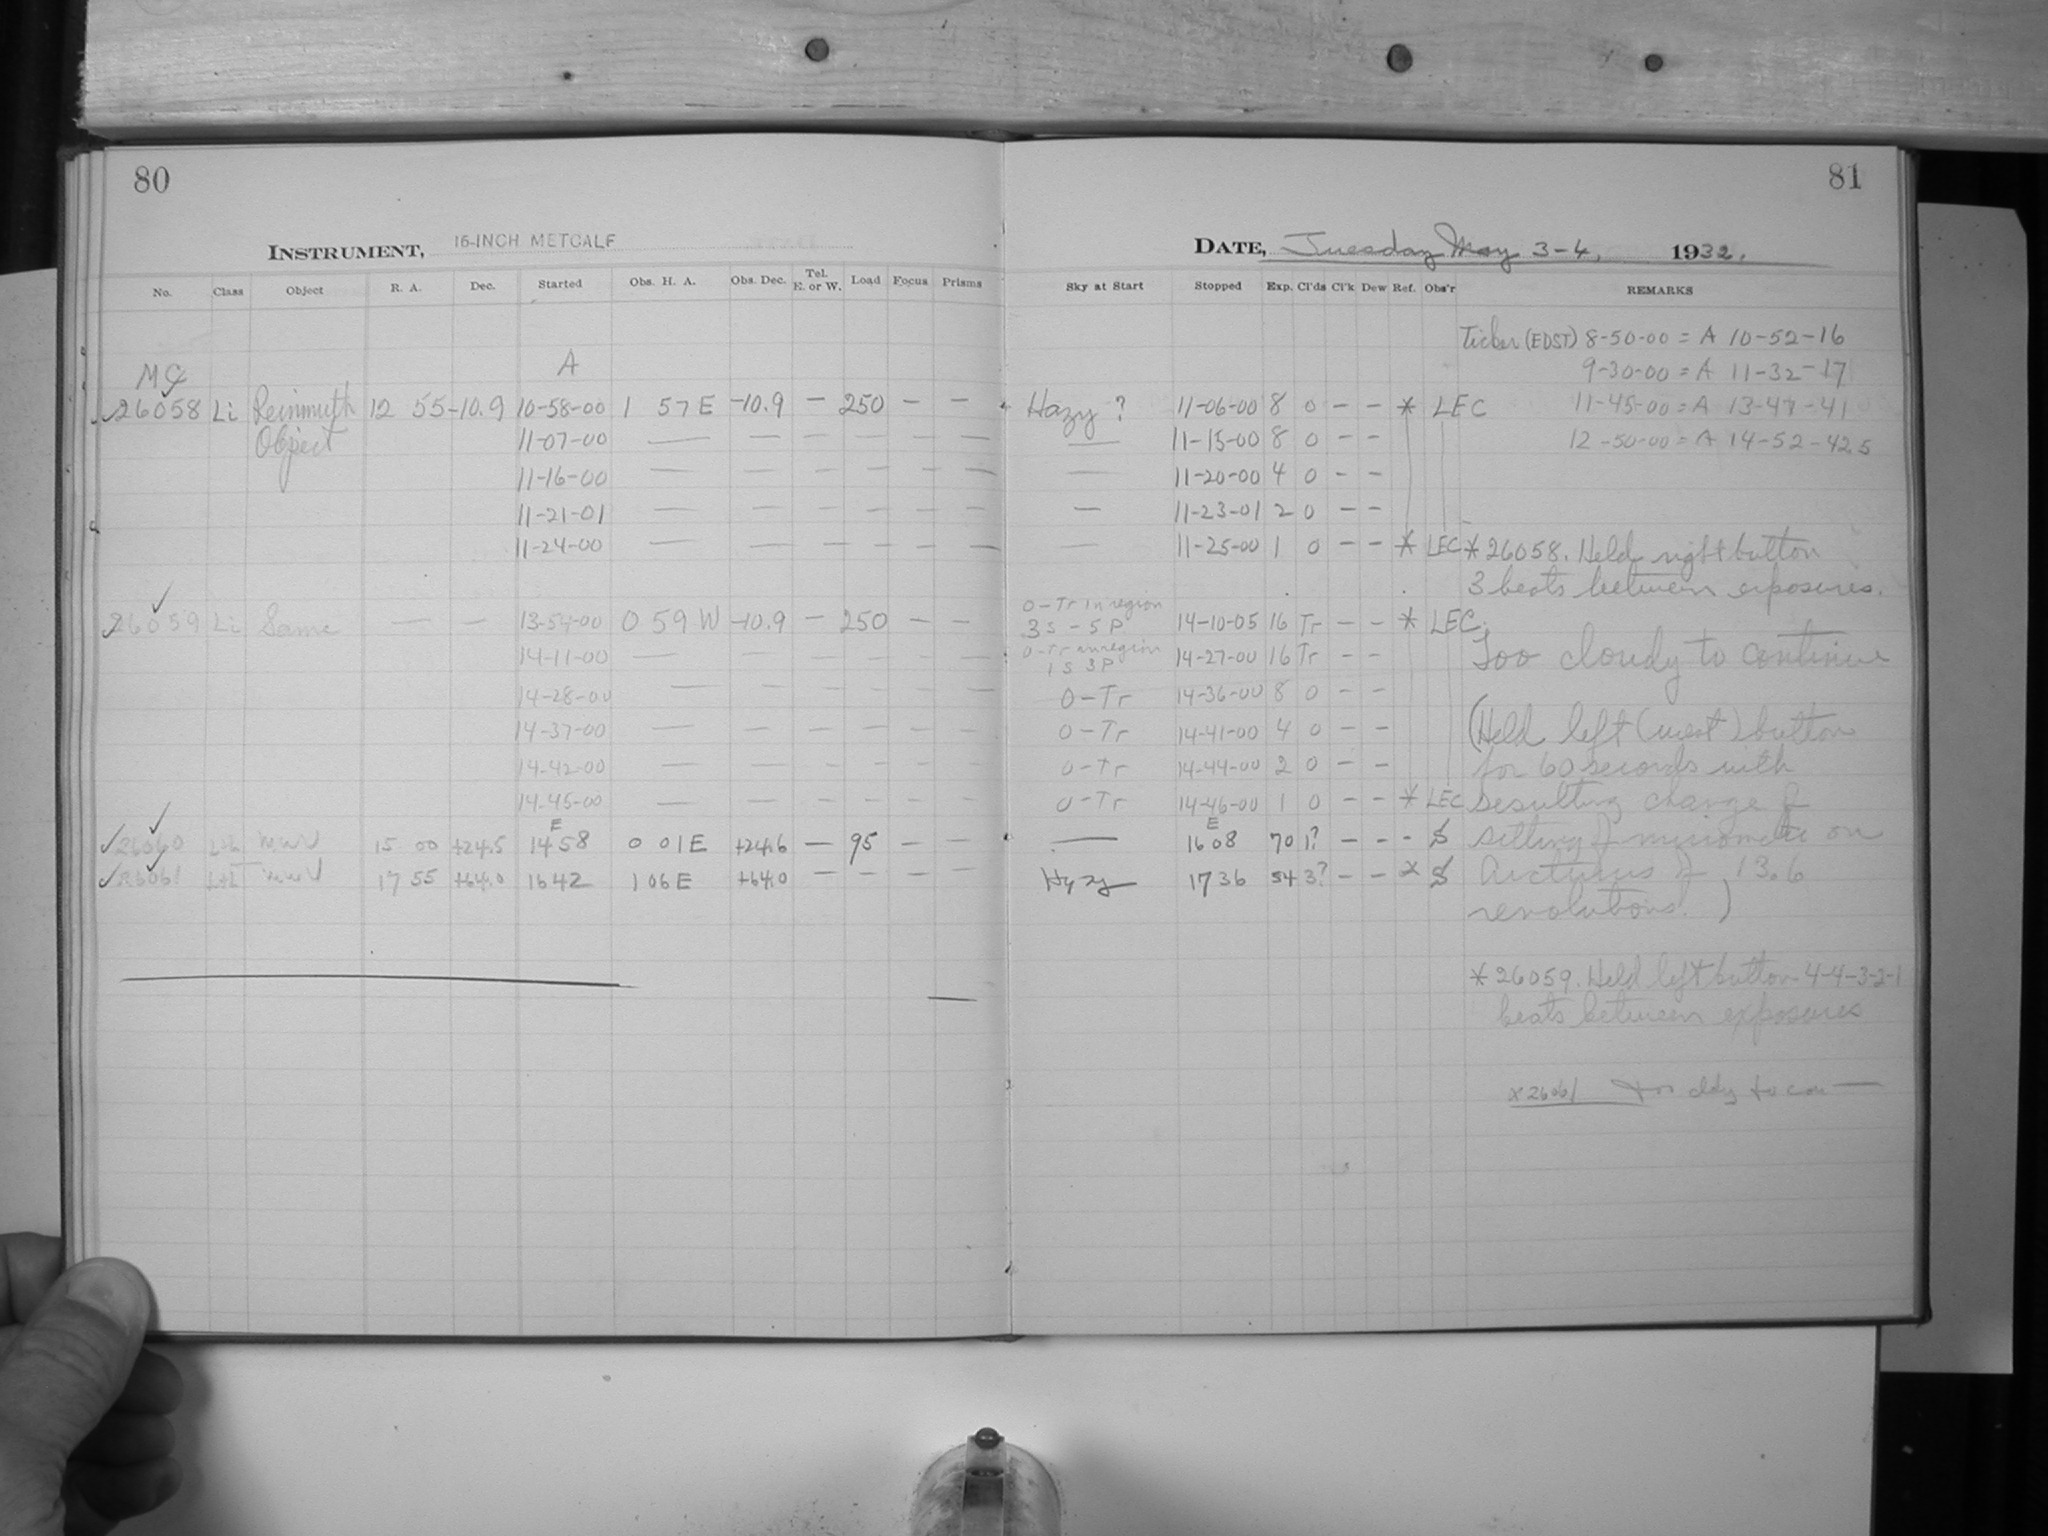 80
INSTRUMENT, 16-INCH METCALF
No. Class Object R. A. Dec. Started Obs. H. A. Obs. Dec. Tel. E. or W. Load Focus Prisms
A
MC
26058 Li Reinmuth 12 55 -10.9 10-58-00 1 57 E -10.9 — 250 — —
Object 11-07-00 — — — — — —
11-16-00 — — — — — —
11-21-01 — — — — — —
11-24-00 — — — — — —
26059 Li Same — — 13-54-00 0 59 W -10.9 — 250 — —
14-11-00 — — — — — —
14-28-00 — — — — — —
14-37-00 — — — — — —
14-42-00 — — — — — —
14-45-00 — — — — — —
E
26060 MWV 15 00 +24.5 14 58 0 01 E +24.6 — 95 — —
26061 MWV 17 55 +64.0 16 42 1 06 E +64.0 — — — —
81
DATE, Tuesday May 3-4, 1932.
Sky at Start Stopped Exp. Cl'ds Cl'k Dew Ref. Obs'r REMARKS
Ticker (EDST) 8-50-00 = A 10-52-16
9-30-00 = A 11-32-17
Hazy ? 11-06-00 8 0 — — * LEC 11-45-00 = A 13-47-41
— 11-15-00 8 0 — — 12-50-00 = A 14-52-42.5
— 11-20-00 4 0 — —
— 11-23-01 2 0 — —
— 11-25-00 1 0 — — * LEC *26058. Held right button
3 beats between exposures.
0-Tr in region
3 S - 5 P 14-10-05 16 Tr — — * LEC
0-Tr in region
1 S 3 P 14-27-00 16 Tr — — Too cloudy to continue
0-Tr 14-36-00 8 0 — —
0-Tr 14-41-00 4 0 — — (Held left (west) button
0-Tr 14-44-00 2 0 — — for 60 seconds with
0-Tr 14-46-00 1 0 — — * LEC resulting change of
E
— 16 08 70 1? — — - S setting of micrometer on
Hazy 17 36 54 3? — — x S Arcturus of 13.6
revolutions.)
*26059. Held left button 4-4-3-2-1
beats between exposures
x 26061 too cldy to con—